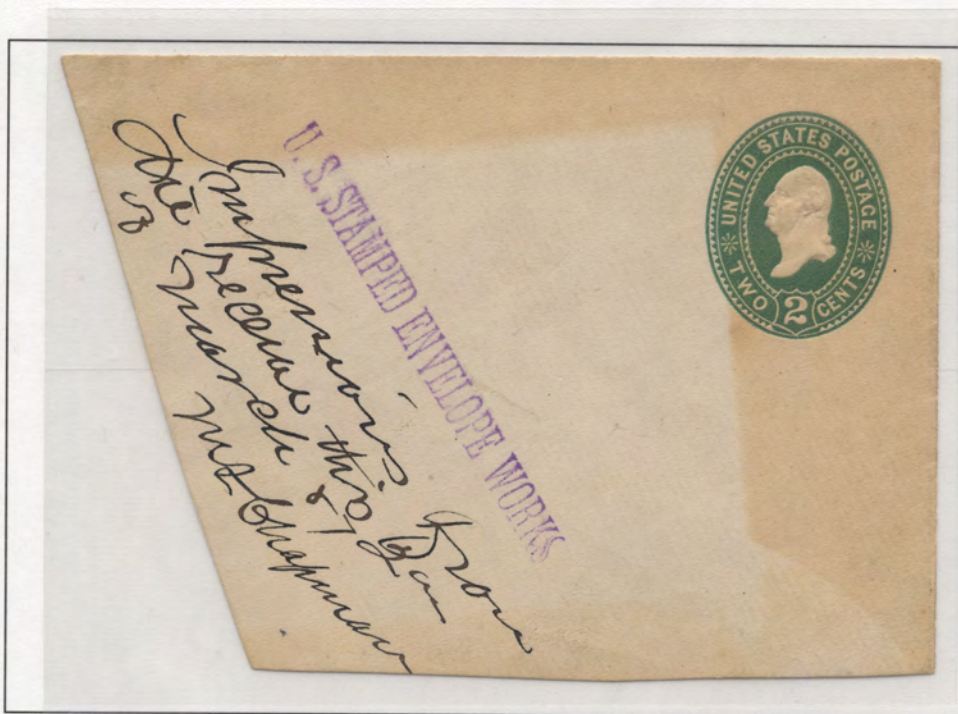 UNITED STATES POSTAGE
TWO 2 CENTS
U. S. STAMPED ENVELOPE WORKS
Impressions from
Die Received this Day
March 87
Chapman